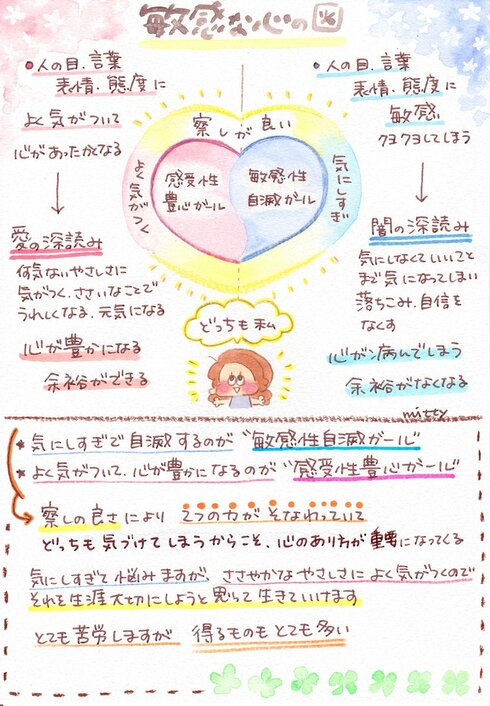 敏感な心の図
•人の目、言葉
表情、態度に
よく気がついて
心があったかくなる
愛の深読み
何気ないやさしさに
気がつく、ささいなことで
うれしくなる、元気になる
心が豊かになる
余裕ができる
察しが良い
よく気がつく
気にしすぎ
感受性
豊心ガール
敏感性
自滅ガール
どっちも私
•人の目、言葉
表情、態度に
敏感
クヨクヨしてしまう
闇の深読み
気にしなくていいこと
まで気になってしまい
落ちこみ、自信を
なくす
心が病んでしまう
余裕がなくなる
mitty
•気にしすぎで自滅するのが“敏感性自滅ガール”
•よく気がついて、心が豊かになるのが“感受性豊心ガール”
察しの良さにより 2つの力がそなわっていて
どっちも気づけてしまうからこそ、心のあり方が重要になってくる
気にしすぎて悩みますが、ささやかなやさしさによく気がつくので
それを生涯大切にしようと思って生きていけます
とても苦労しますが 得るものもとても多い